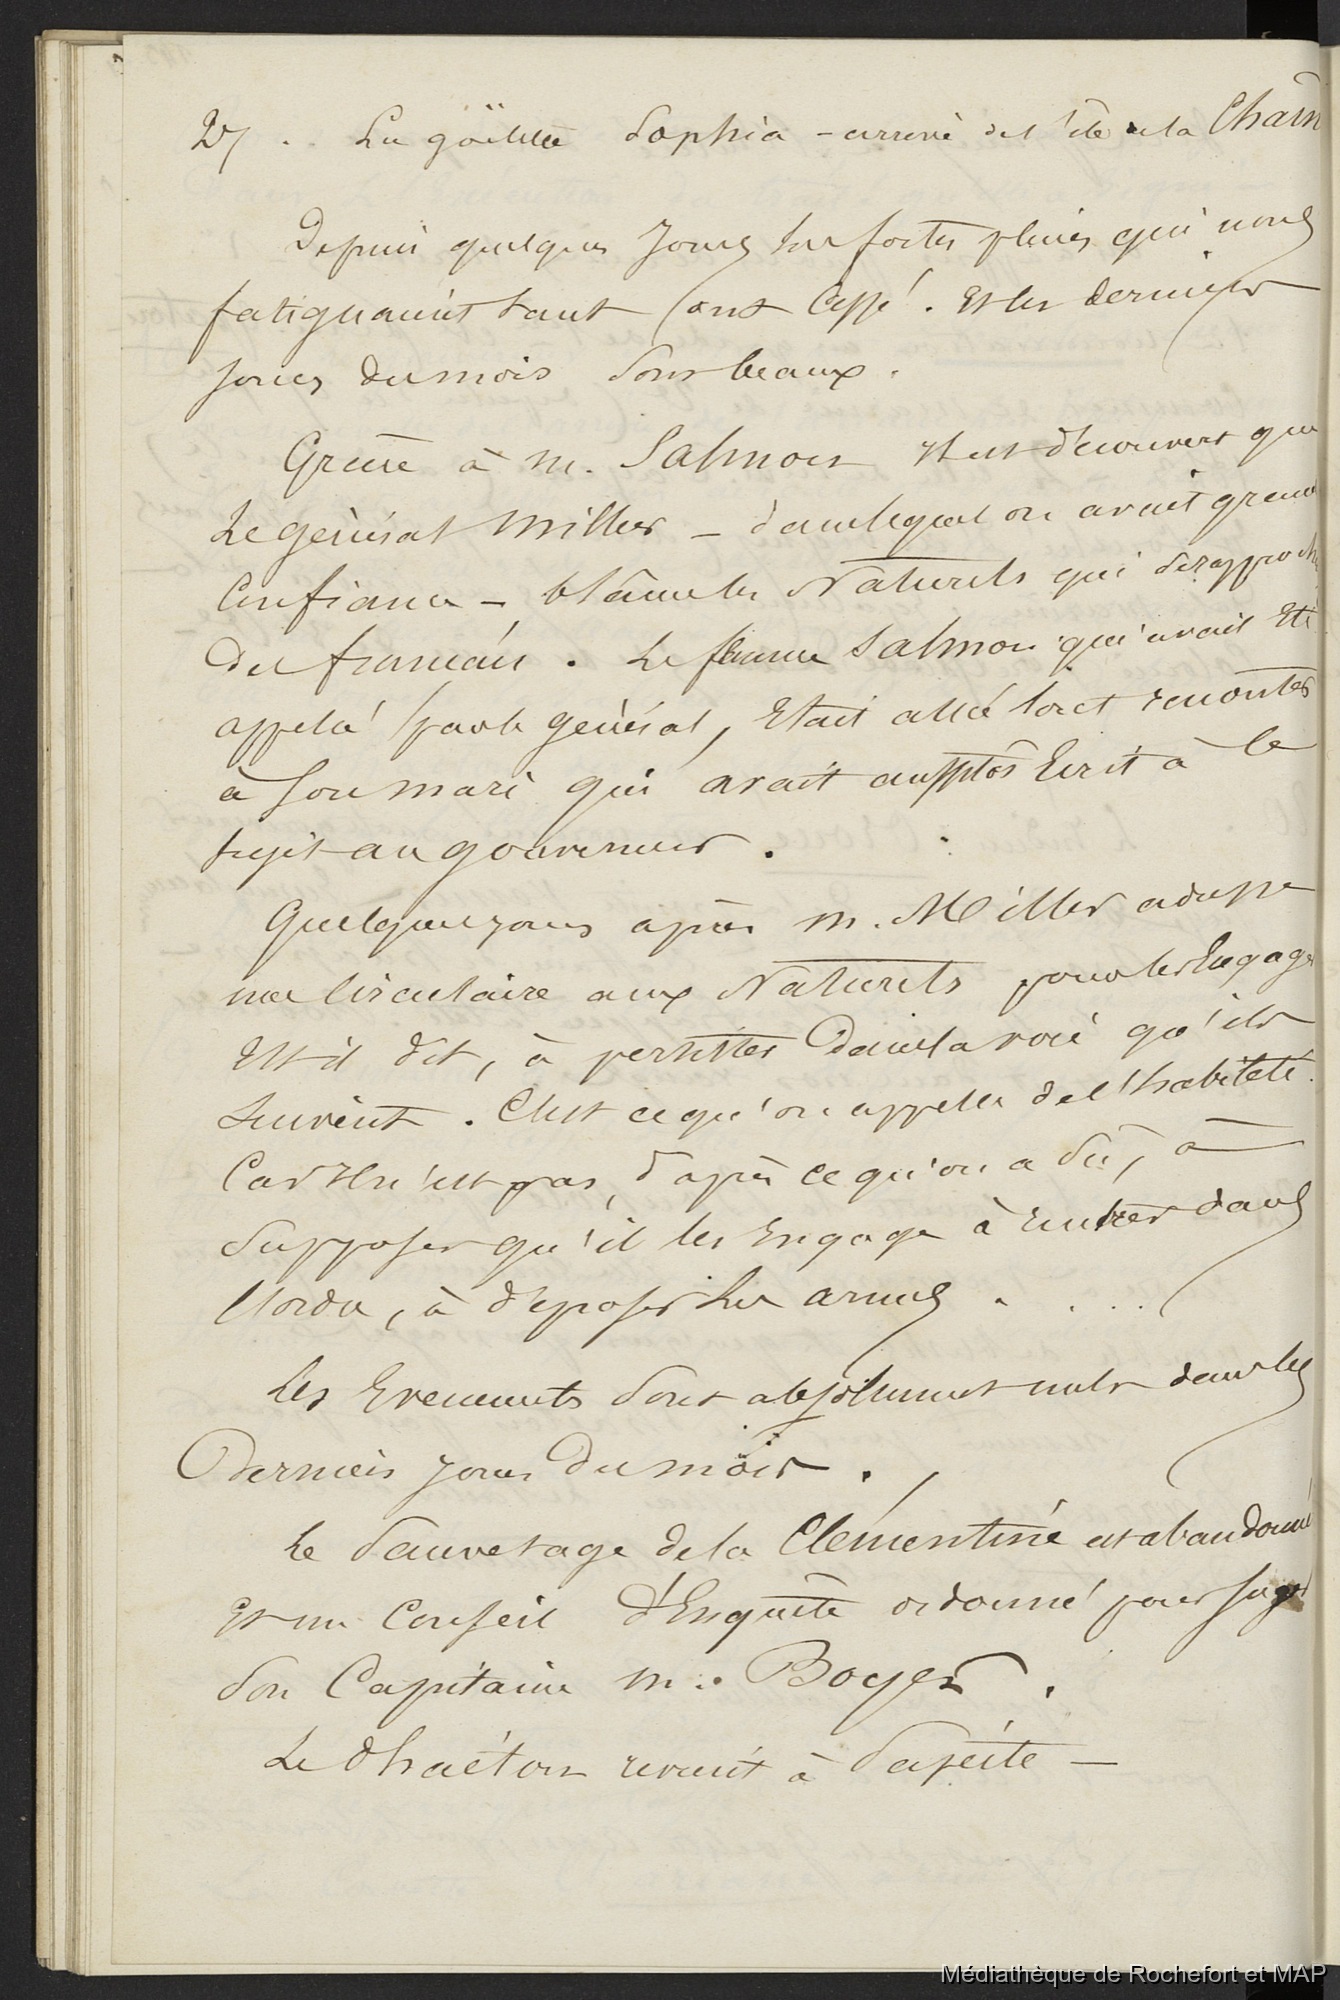 27 . La goëlette Sophia - arrive de l'île de la Chain
Depuis quelques jours les fortes pluies qui nous
fatiguaient tant ont cessé. Et les derniers
jours du mois sont beaux.
Grâce à M. Salmon il est découvert que
le général Miller - dans lequel on avait grand
confiance - blâme les Naturels qui se rapproch
du français. La femme Salmon qui avait été
appelé par le général, était allé tout raconter
à son mari qui avait aussitôt écrit à ce
sujet au gouverneur.
Quelques jours après M. Miller adresse
une circulaire aux Naturels pour les Engager
est-il dit, à persister dans la voie qu'ils
suivent. C'est ce qu'on appelle de l'habileté.
Car il n'est pas, d'après ce qu'on a su, à
supposer qu'il les Engage à entrer dans
l'ordre, à déposer les armes . . . .
Les Evenements sont absolument nuls dans les
Derniers jours du mois.
Le Sauvetage de la Clémentine est abandonné
Et un Conseil d'Enquête ordonné pour juger
son Capitaine M. Boyer.
Le Phaéton revient à Papéite -
Médiathèque de Rochefort et MAP